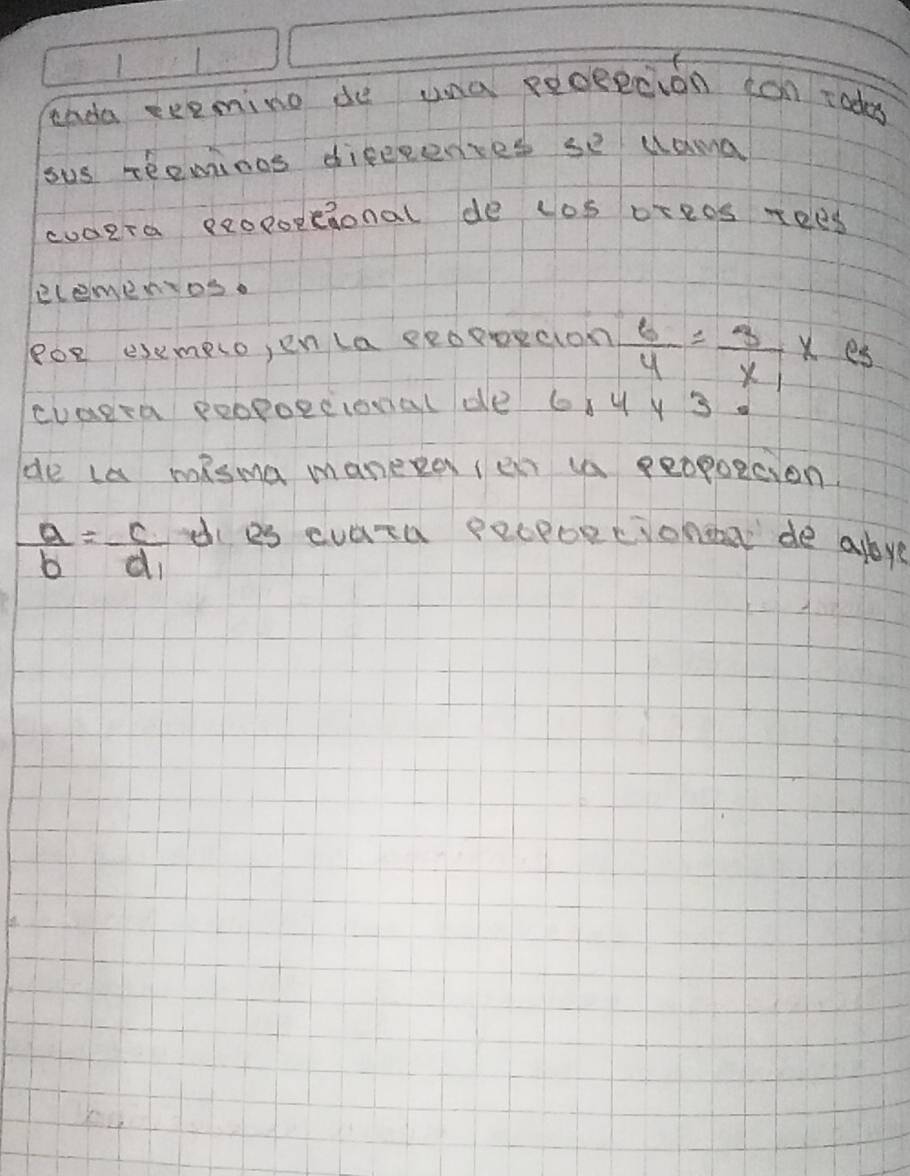 cada termino de una proporción con todos
sus términos diferentes se llama
cuarta proporcional de los otros tres
elementos.
por ejemplo, en la proporcion 6/4 = 3/x, x es
cuarta proporcional de 6, 4 y 3.
de la misma manera, en la proporcion
a/b = c/d, d es cuata proporcional de a, b y c